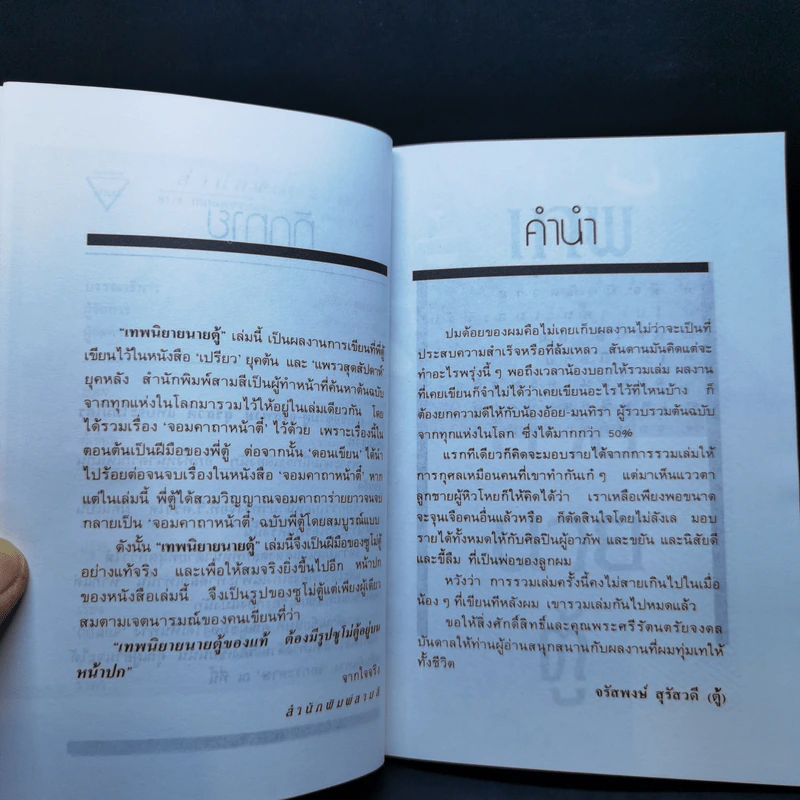 ทักทาย
"เทพนิยายนายตู้" เล่มนี้ เป็นผลงานการเขียนที่พี่ตู้
เขียนไว้ในหนังสือ 'เปรียว' ยุคต้น และ 'แพรวสุดสัปดาห์'
ยุคหลัง สำนักพิมพ์สามสีเป็นผู้ทำหน้าที่ค้นหาต้นฉบับ
จากทุกแห่งในโลกมารวมไว้ให้อยู่ในเล่มเดียวกัน โดย
ได้รวมเรื่อง 'จอมคาถาหน้าตี๋' ไว้ด้วย เพราะเรื่องนี้ใน
ตอนต้นเป็นฝีมือของพี่ตู้ ต่อจากนั้น 'ตอนเขียน' ได้นำ
ไปร้อยต่อจนจบเรื่องในหนังสือ 'จอมคาถาหน้าตี๋' หาก
แต่ในเล่มนี้ พี่ตู้ได้สวมวิญญาณจอมคาถาร่ายยาวจนจบ
กลายเป็น 'จอมคาถาหน้าตี๋' ฉบับพี่ตู้โดยสมบูรณ์แบบ
ดังนั้น "เทพนิยายนายตู้" เล่มนี้จึงเป็นฝีมือของซูโม่ตู้
อย่างแท้จริง และเพื่อให้สมจริงยิ่งขึ้นไปอีก หน้าปก
ของหนังสือเล่มนี้ จึงเป็นรูปของซูโม่ตู้แต่เพียงผู้เดียว
สมตามเจตนารมณ์ของคนเขียนที่ว่า
"เทพนิยายนายตู้ของแท้ ต้องมีรูปซูโม่ตู้อยู่บน
หน้าปก"
จากใจจริง
สำนักพิมพ์สามสี
คำนำ
ปมด้อยของผมคือไม่เคยเก็บผลงานไม่ว่าจะเป็นที่
ประสบความสำเร็จหรือที่ล้มเหลว สันดานมันคิดแต่จะ
ทำอะไรพรุ่งนี้ ๆ พอถึงเวลาน้องบอกให้รวมเล่ม ผลงาน
ที่เคยเขียนก็จำไม่ได้ว่าเคยเขียนอะไรไว้ที่ไหนบ้าง ก็
ต้องยกความดีให้กับน้องอ้อย-มนทิรา ผู้รวบรวมต้นฉบับ
จากทุกแห่งในโลก ซึ่งได้มากกว่า 50%
แรกทีเดียวก็คิดจะมอบรายได้จากการรวมเล่มให้
การกุศลเหมือนคนที่เขาทำกันเก๋ ๆ แต่มาเห็นแววตา
ลูกชายผู้หิวโหยก็ให้คิดได้ว่า เราเหลือเพียงพอขนาด
จะจุนเจือคนอื่นแล้วหรือ ก็ตัดสินใจโดยไม่ลังเล มอบ
รายได้ทั้งหมดให้กับศิลปินผู้อาภัพ และขยัน และนิสัยดี
และขี้ลืม ที่เป็นพ่อของลูกผม
หวังว่า การรวมเล่มครั้งนี้คงไม่สายเกินไปในเมื่อ
น้อง ๆ ที่เขียนทีหลังผม เขารวมเล่มกันไปหมดแล้ว
ขอให้สิ่งศักดิ์สิทธิ์และคุณพระศรีรัตนตรัยจงดล
บันดาลให้ท่านผู้อ่านสนุกสนานกับผลงานที่ผมทุ่มเทให้
ทั้งชีวิต
จรัสพงษ์ สุรัสวดี (ตู้)